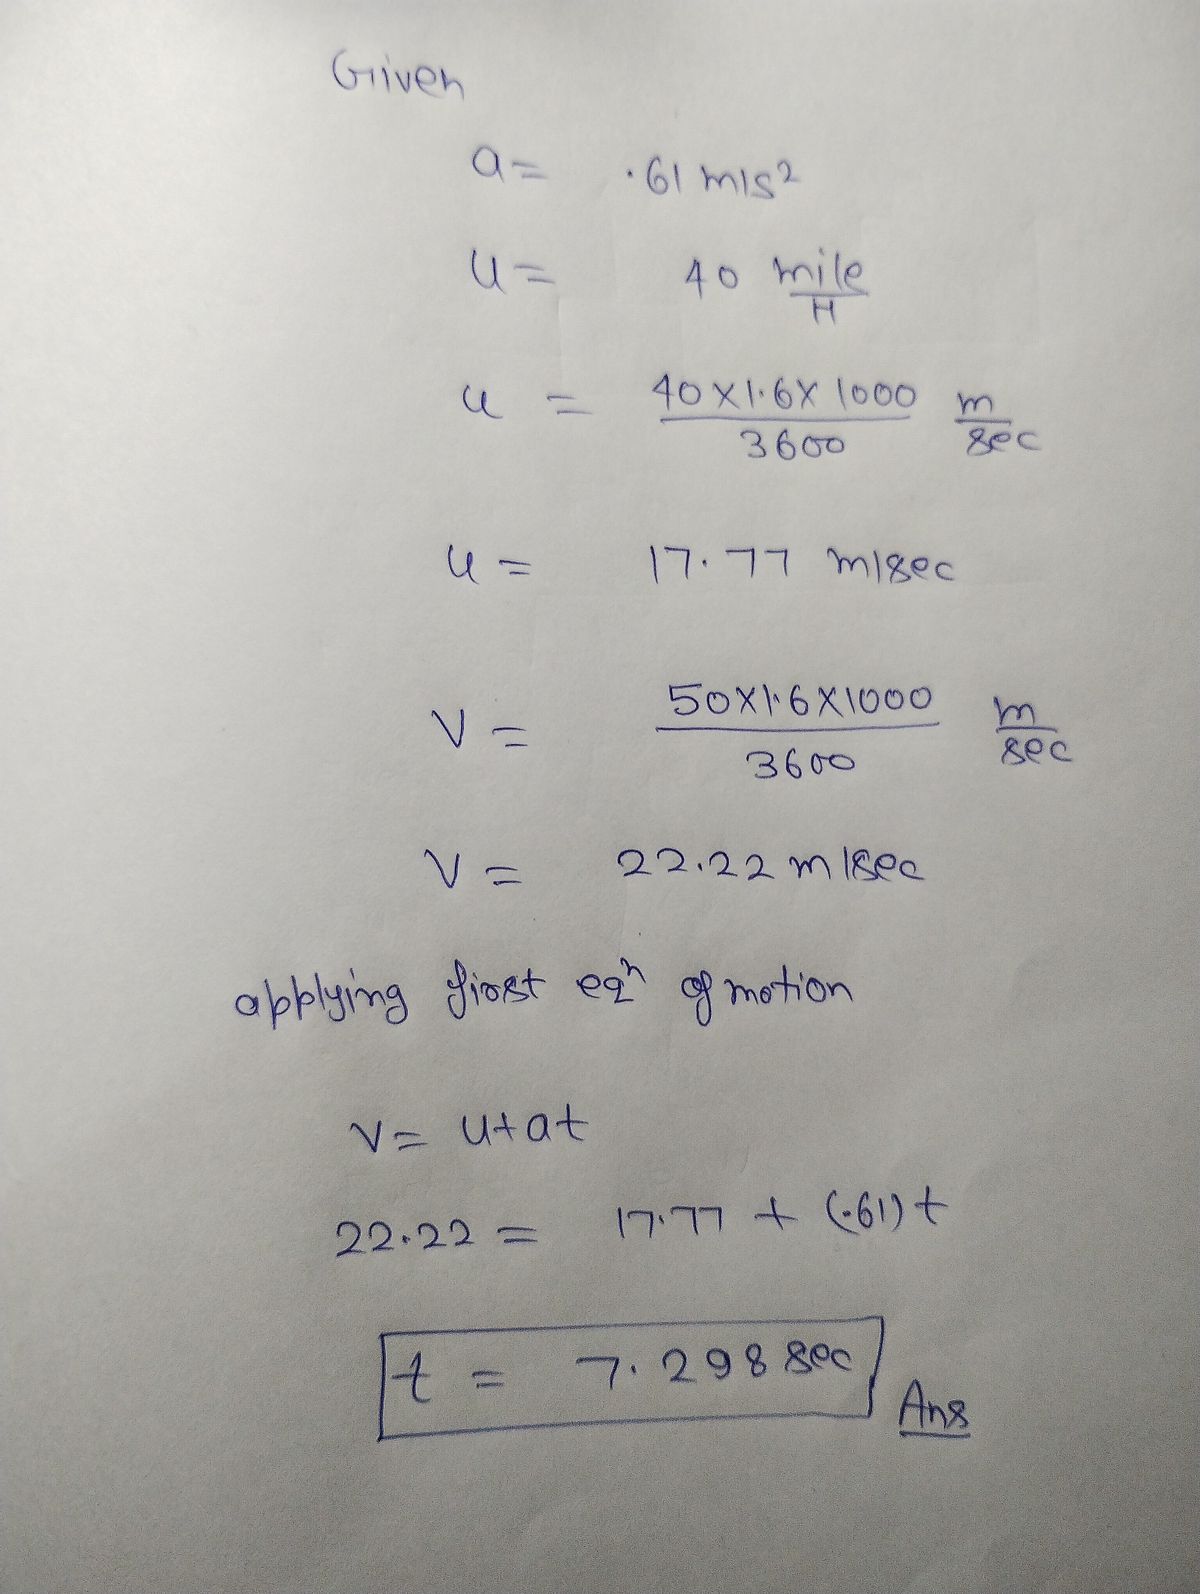 Given
a = .61 m/s²
u = 40 mile/H
u = 40×1.6×1000/3600 m/sec
u = 17.77 m/sec
V = 50×1.6×1000/3600 m/sec
V = 22.22 m/sec
applying first eqⁿ of motion
V = u+at
22.22 = 17.77 + (.61)t
t = 7.298 sec Ans